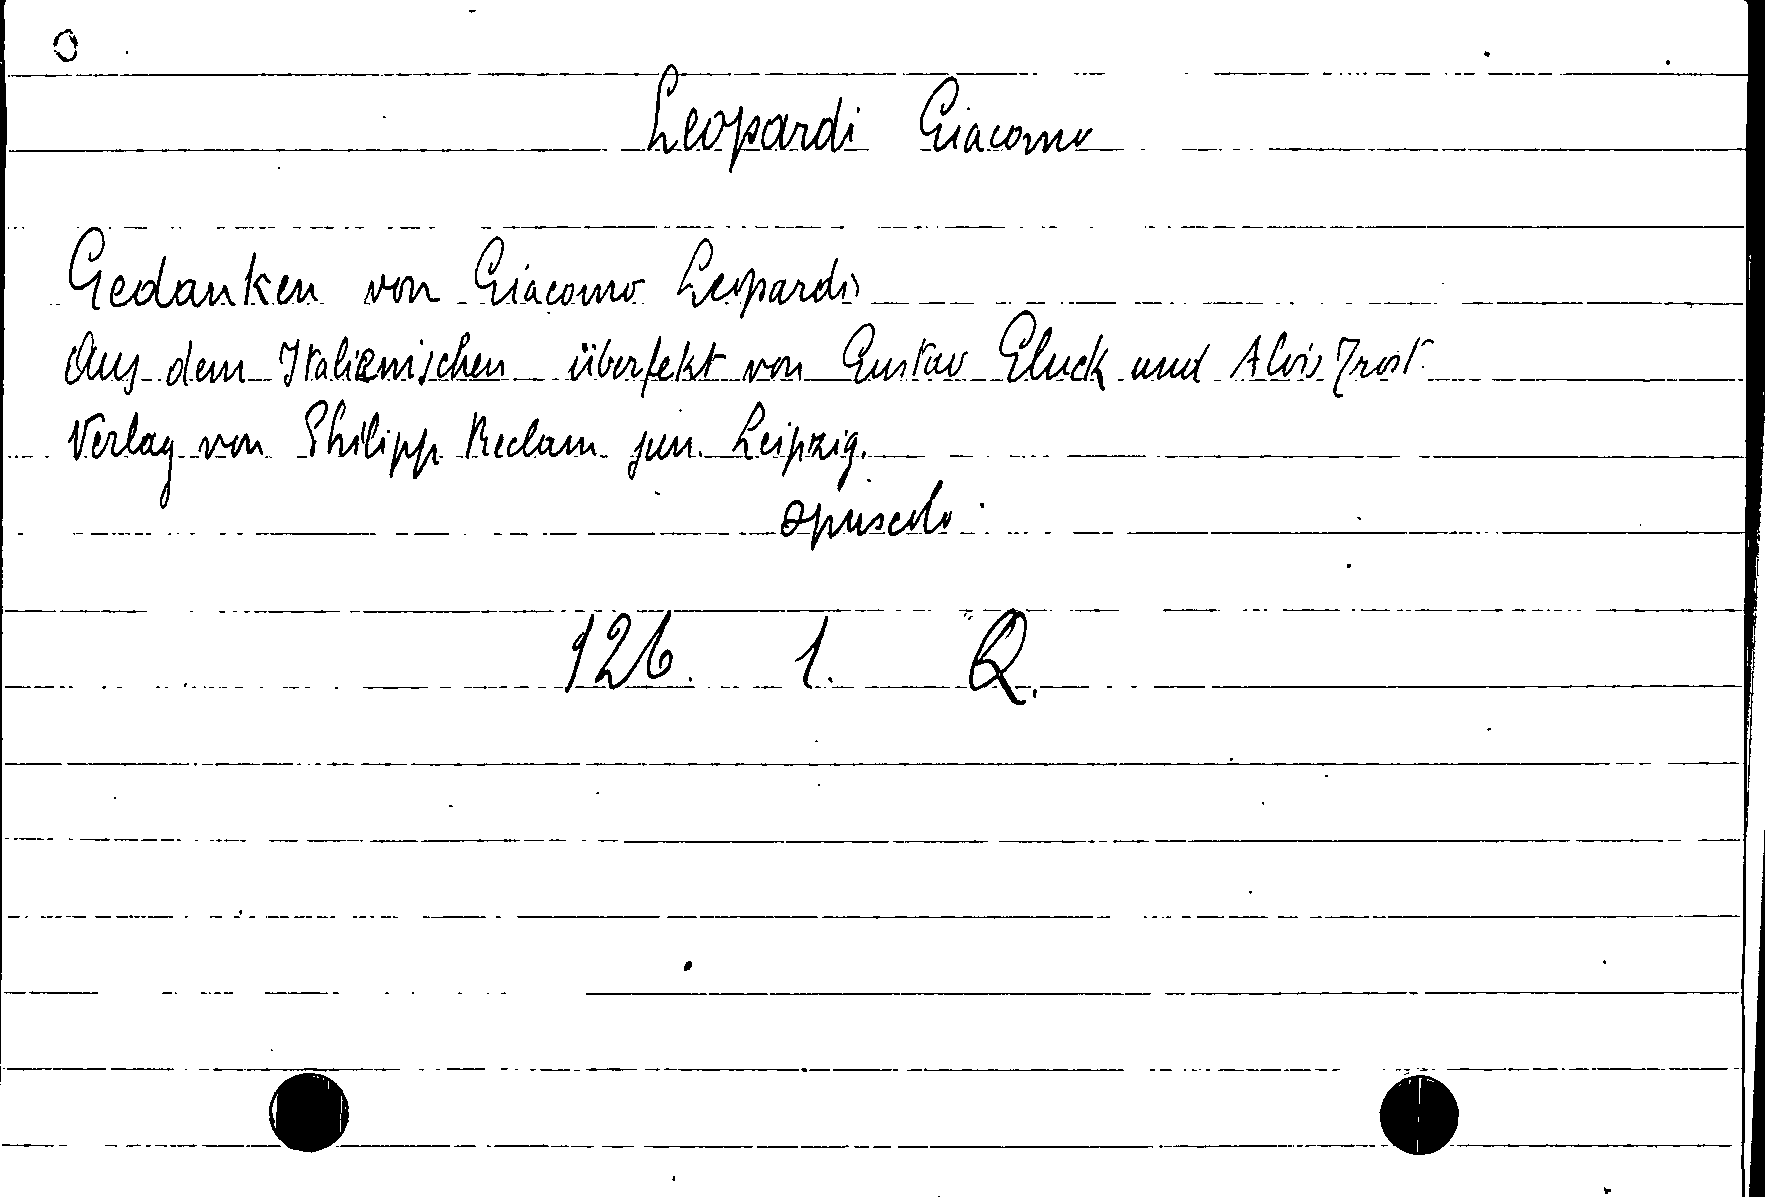 O
Leopardi Giacomo
Gedanken von Giacomo Leopardi
Aus dem Italienischen überfekt von Gustav Gluck und Alois Trost.
Verlag von Philipp Reclam jun. Leipzig.
opuscolo
126. 1. Q.